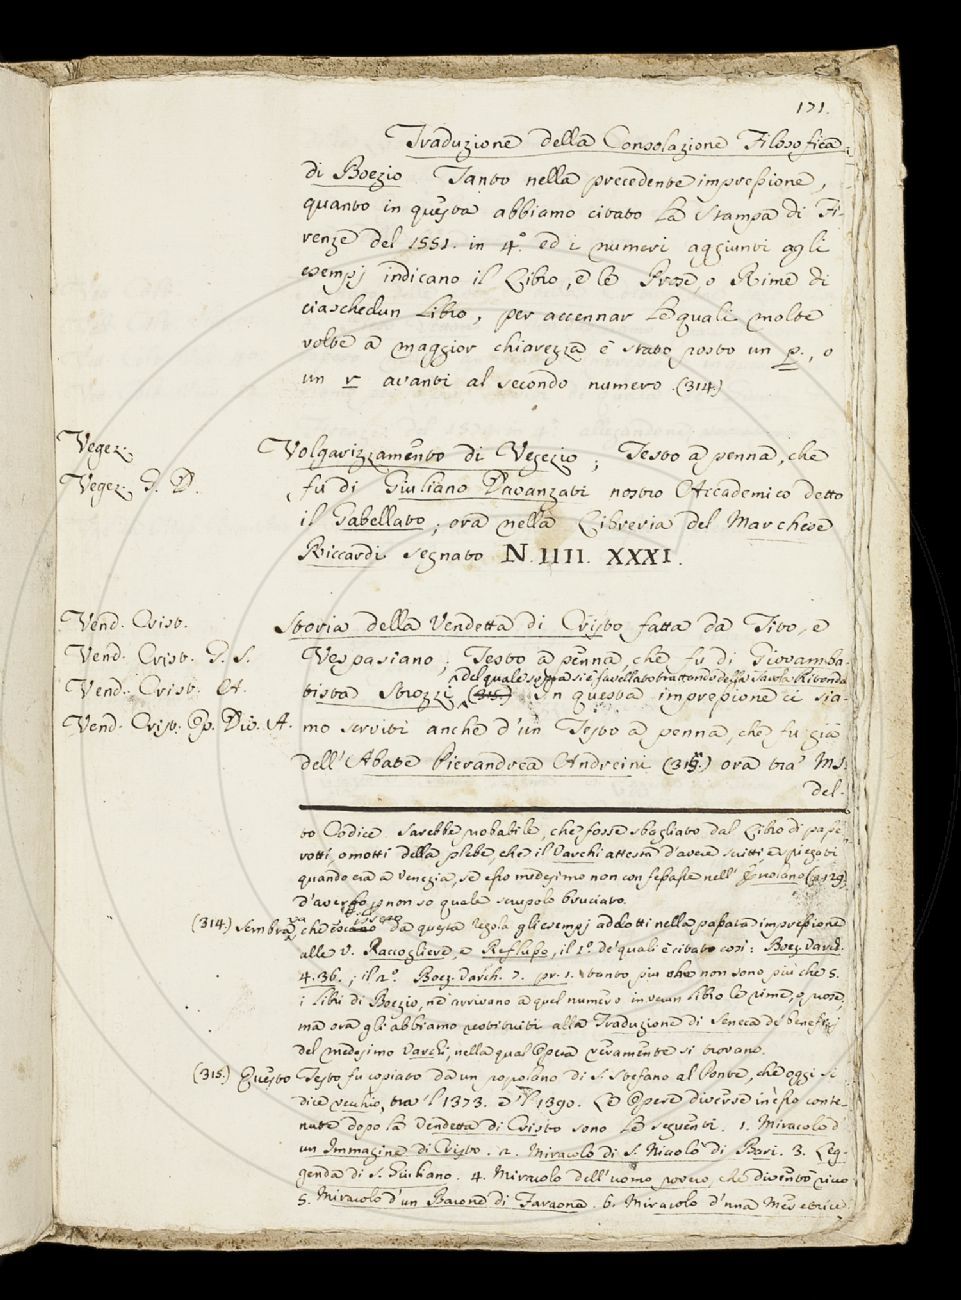 171.
Traduzione della Consolazione Filosofica
di Boezio. Tanto nella precedente impressione,
quanto in questa abbiamo citato la Stampa di Fi-
renze del 1551. in 4.° ed i numeri aggiunti agli
esempj indicano il Libro, e le Prose, o Rime di
ciaschedun Libro, per accennar le quali molte
volte a maggior chiarezza è stato posto un p., o
un r avanti al secondo numero. (314)
Vegez.
Volgarizzamento di Vegezio; Testo a penna, che
Vegez. G. D.
fu di Giuliano Davanzati nostro Accademico detto
il Gabellato; ora nella Libreria del Marchese
Riccardi segnato N. IIII. XXXI.
Vend. Crist.
Storia della Vendetta di Cristo fatta da Tito, e
Vend. Crist. G. S.
Vespasiano; Testo a penna, che fu di Giovamba-
del quale sopra si è favellato trattando della Tavola Ritonda
Vend. Crist. A.
tista Strozzi (315.) In questa impressione ci sia-
Vend. Crist. Op. Div. A.
mo serviti anche d'un Testo a penna, che fu già
dell'Abate Pierandrea Andreini (315.) ora tra' MS.
del-
to Codice. Sarebbe probabile, che fosse sbagliato dal Libro di passe-
rotti, o motti della plebe, che il Varchi attesta d'avere scritti, e spiegati
quando era a Venezia, se esso medesimo non confessasse nell' Ercolano
d'averso, non so quale scrupolo bruciato.
(314) Sembra, che da questa regola gli esempj addotti nella passata impressione
alle V. Raccogliere, e Reflusso, il 1.° de' quali è citato così: Boez. Varch.
4. 36.; il 2.° Boez. Varch. 7. pr. 1. tanto più che non sono, più che 5.
i Libri di Boezio, nè arrivano a quel numero in verun Libro le rime, o prose,
ma ora gli abbiamo restituiti alla Traduzione di Seneca de' benefizj
del medesimo Varchi, nella qual Opera veramente si trovano.
(315.) Questo Testo fu copiato da un popolano di S. Stefano al Ponte, che oggi si
dice vecchio, tra 'l 1373. e 'l 1390. Le Opere diverse in esso conte-
nute dopo la Vendetta di Cristo sono le seguenti. 1. Miracolo d'
un Immagine di Cristo. 2. Miracolo di S. Niccolò di Bari. 3. Leg-
genda di S. Giuliano. 4. Miracolo dell'uomo povero, che diventò ricco
5. Miracolo d'un Barone di Faraona. 6. Miracolo d'una Meretrice.